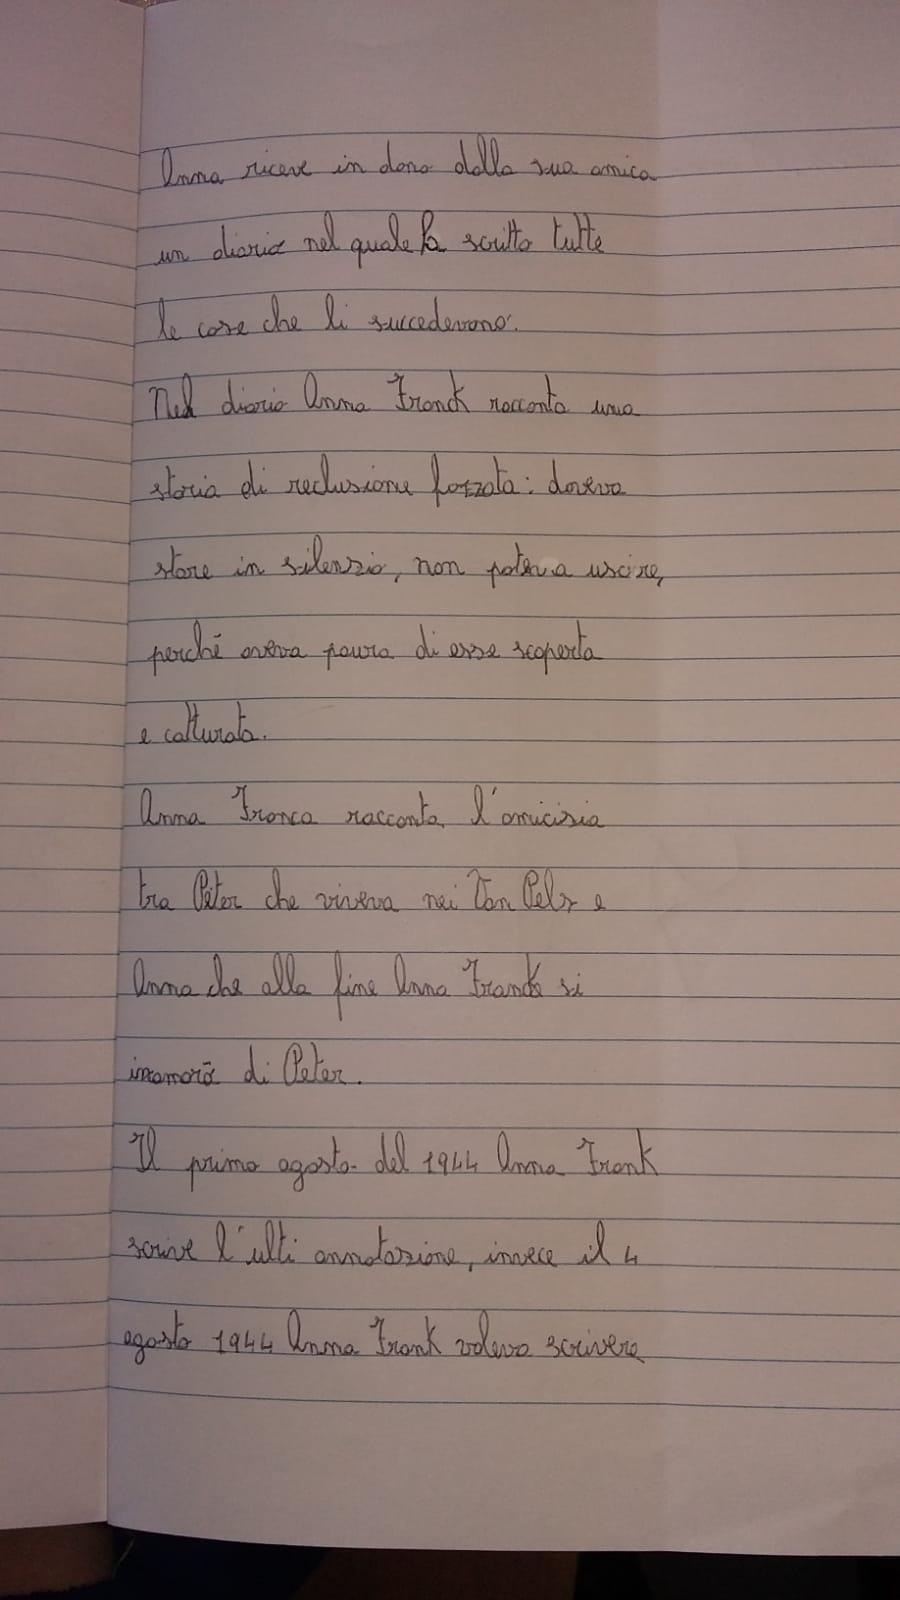 Anna riceve in dono dalla sua amica
un diario nel quale ha scritto tutte
le cose che li succedevano.
Nel diario Anna Franck racconta una
storia di reclusione forzata: doveva
stare in silenzio, non poteva uscire,
perché aveva paura di esse scoperta
e catturata.
Anna Franca racconta l'amicizia
tra Peter che viveva nei Van Pels e
Anna che alla fine Anna Franck si
innamorò di Peter.
Il primo agosto del 1944 Anna Frank
scrive l'ulti annotazione, invece il 4
agosto 1944 Anna Frank voleva scrivere